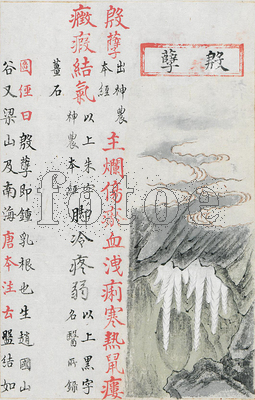 殷孽
殷孽 出神農本經 主爛傷瘀血洩痢寒熱鼠瘻
癥瘕結氣 以上朱字神農本經 脚冷疼弱 以上黑字名醫所錄
薑石
圖經曰殷孽即鍾乳根也生趙國山
谷又梁山及南海唐本注云盤結如
fotoe